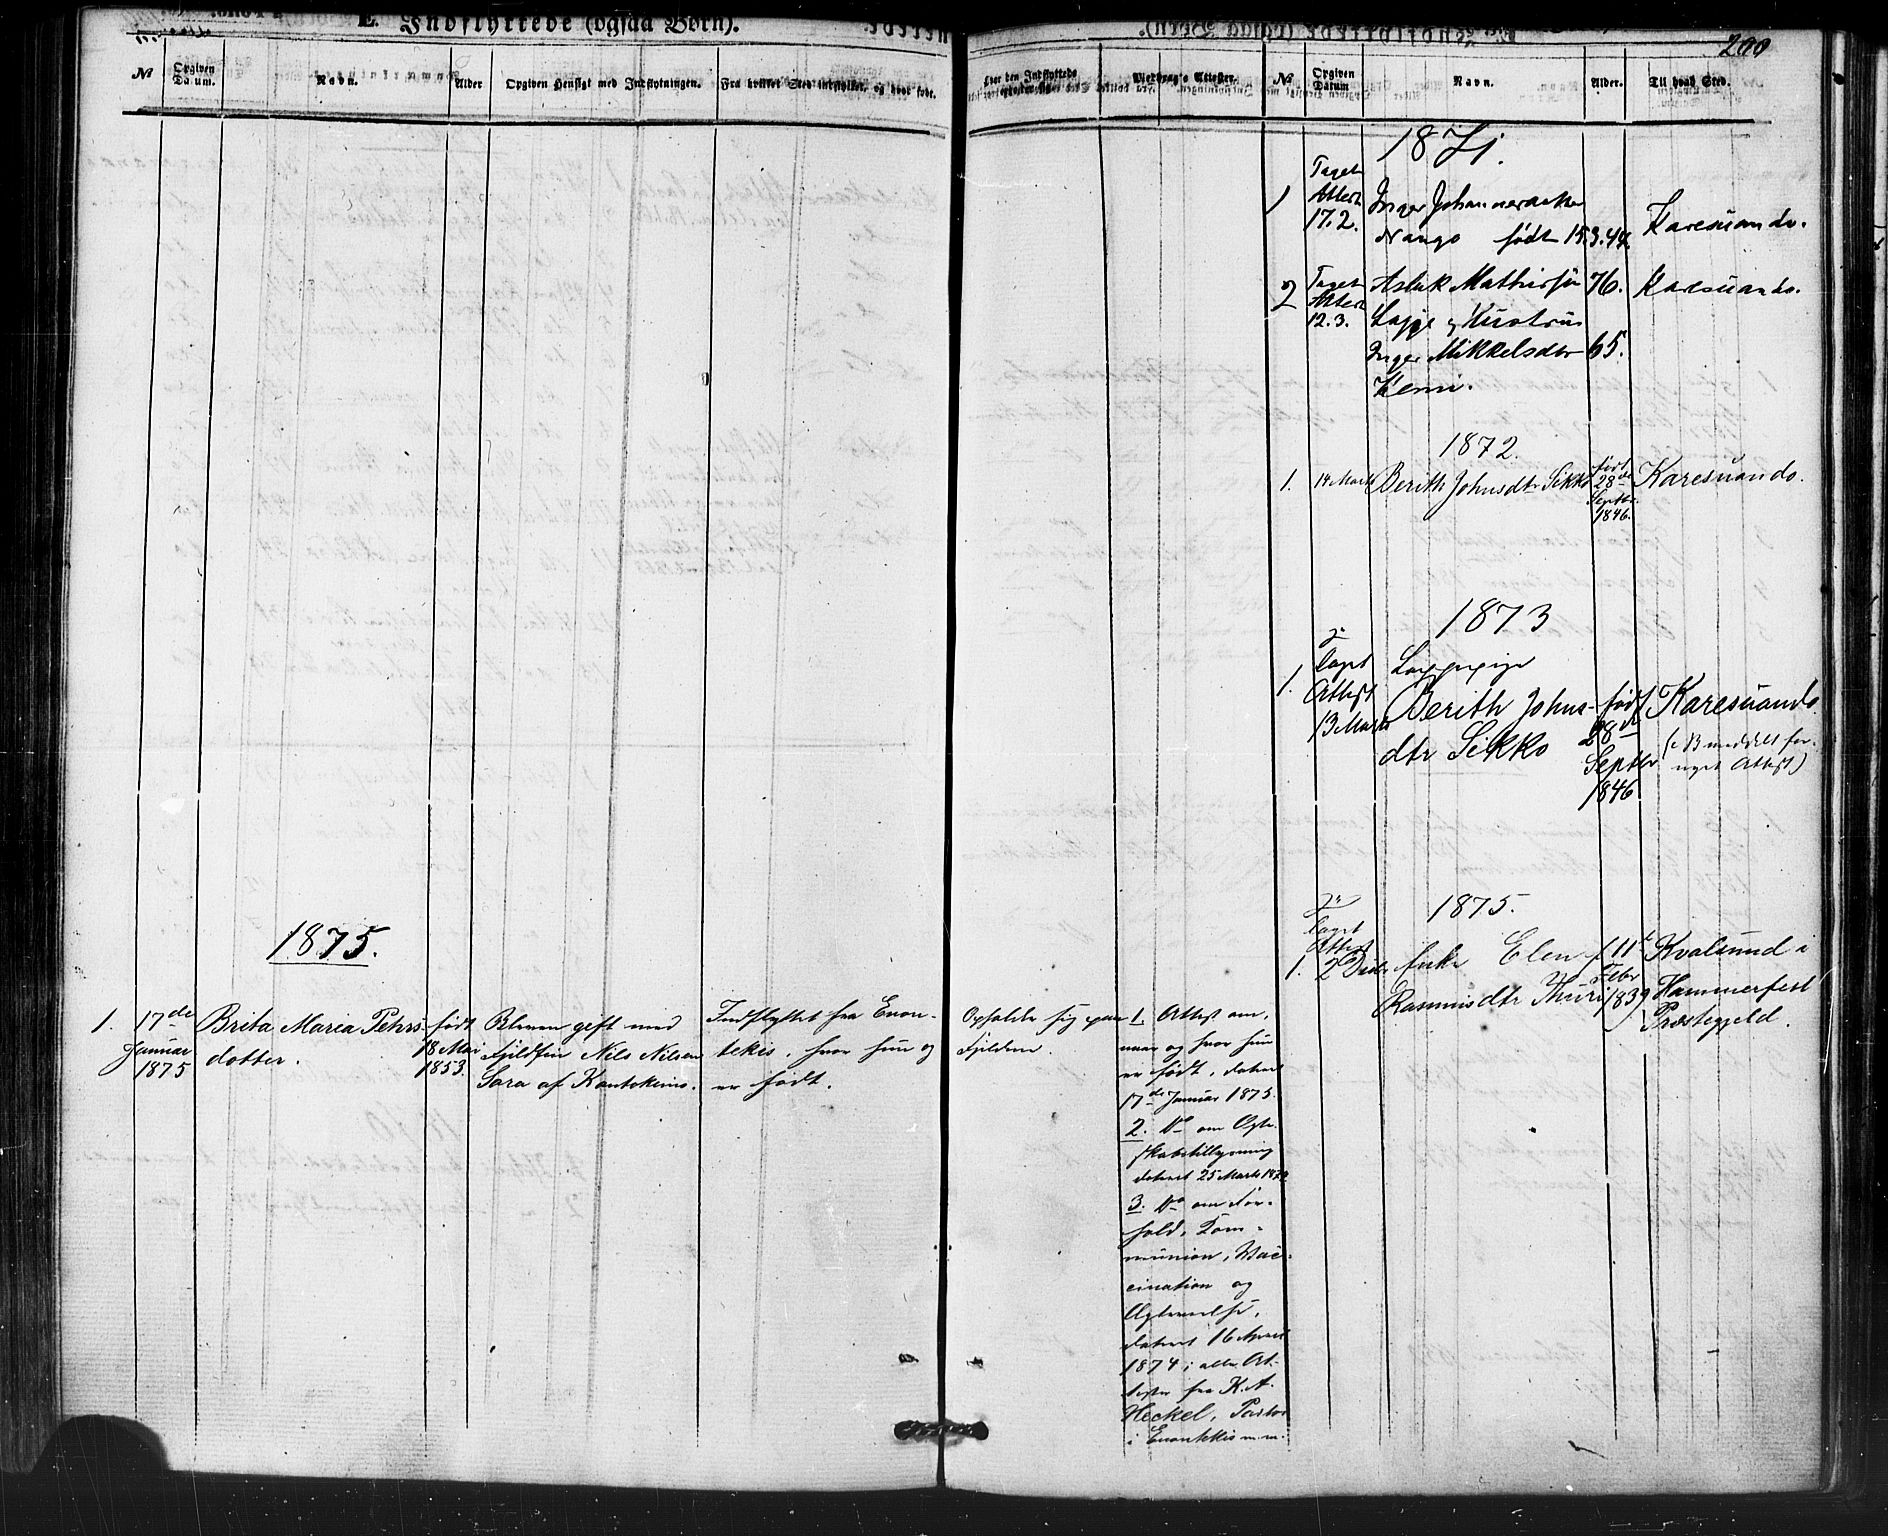 E. Indflyttede (ogsaa Børn).
200
№
Opgiven Datum.
Navn.
Alder
Opgiven Hensigt med Indflytningen.
Fra hvilket Sted indflyttet, og hvor født.
Hvor den Indflyttede opholder sig.
Medbragte Attester.
№
Opgiven Datum
Navn.
Alder.
Til hvad Sted.
1875.
1.
17de
Januar
1875
Brita Maria Pehrs-
dotter.
født
18 Mai
1853.
Bleven gift med
Fjeldfin Nils Nilsen
Sara af Kautokeino.
Indflyttet fra Enon-
tekis, hvor hun og
er født.
Opholde sig paa
Fjeldene.
1. Attest om,
naar og hvor hun
er født, dateret
17de Januar 1875.
2. Do om Ægte-
skabstillysning
dateret 25 Marts
3. Do om For-
hold, Kom-
munion, Vac-
cination og
dateret 16 April
1874; alle At-
tester fra K. A.
Heckel, Pastor
i Enontekis m.m.
1871.
1
Taget
Attest
17.2.
Inger Johannesdatter
Nango født 15.3.44.
Karesuando.
2
Taget
Attest
12.3.
Aslak Mathissen 76.
Lappe og Hustru
Inger Mikkelsdtr 65.
Kemi.
Karesuando.
1872.
1.
14 Marts
Berith Johnsdtr Sikko
født
28de
Septbr
1846.
Karesuando.
1873
1.
Taget
Attest
13 Marts
Lappepige
Berith Johns-
dtr Sikko
født
28de
Septbr
1846
Karesuando
meddelt for-
nyet Attest)
1875.
1.
Taget
Attest
2 Decbr
Enke Elen
Rasmusdtr Thuri
f 11te
Febr
1839
Kvalsund i
Hammerfest
Præstegjeld.